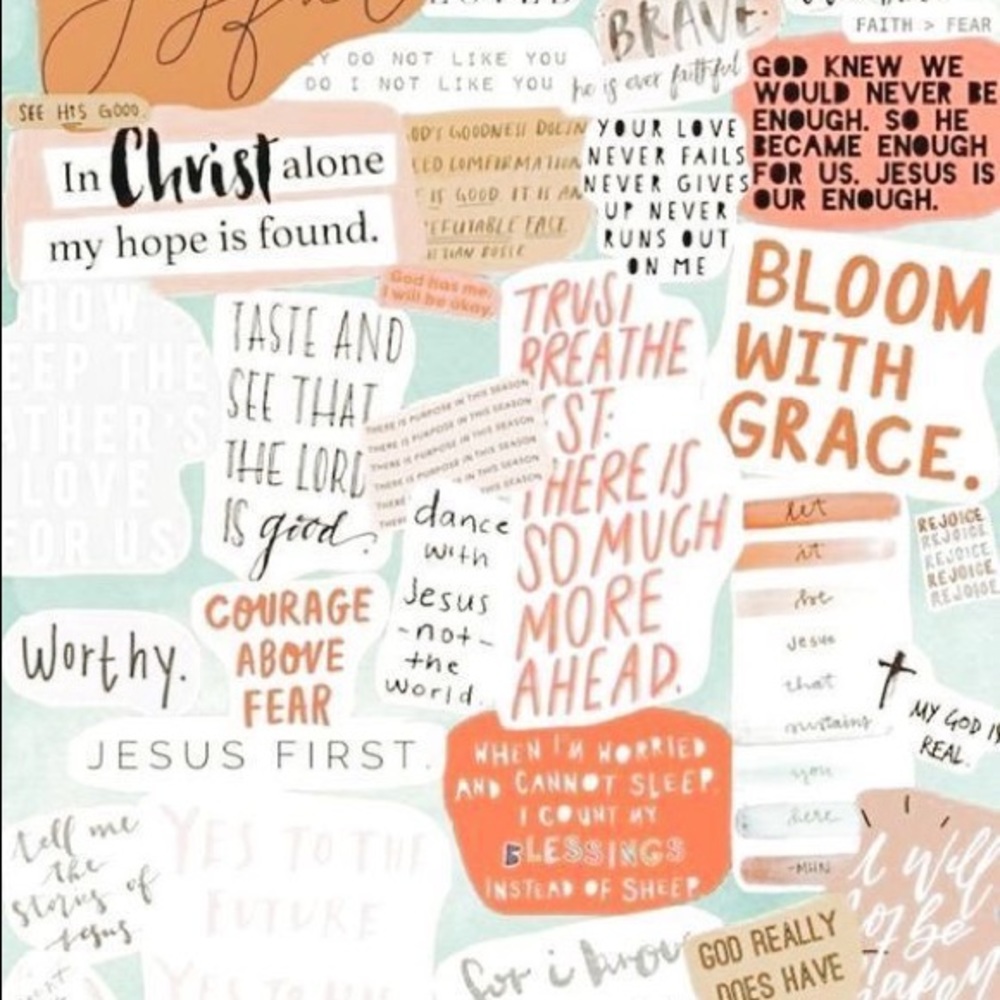 LOVED
BRAVE.
FAITH > FEAR
DO NOT LIKE YOU
DO I NOT LIKE YOU
he is ever faithful
SEE HIS GOOD.
In Christ alone
my hope is found.
OD'S GOODNESS DOESN
IS GOOD IT IS AN
EFUTABLE FACT
YOUR LOVE
NEVER FAILS
NEVER GIVES
UP NEVER
RUNS OUT
ON ME
GOD KNEW WE
WOULD NEVER BE
ENOUGH. SO HE
BECAME ENOUGH
FOR US. JESUS IS
OUR ENOUGH.
God has me.
I will be okay.
HOW
EEP THE
ATHER'S
LOVE
FOR US
TASTE AND
SEE THAT
THE LORD
IS good.
THERE IS PURPOSE IN THIS SEASON
THERE IS PURPOSE IN THIS SEASON
THERE IS PURPOSE IN THIS SEASON
THERE IS PURPOSE IN THIS SEASON
THERE IS PURPOSE IN THIS SEASON
IN THIS SEASON
TRUST
BREATHE
EST.
THERE IS
SO MUCH
MORE
AHEAD.
BLOOM
WITH
GRACE.
dance
with
Jesus
-not-
the
world.
let
it
be
Jesus
that
sustains
you
here
-MHN
REJOICE
REJOICE
REJOICE
REJOICE
REJOICE
Worthy.
COURAGE
ABOVE
FEAR
MY GOD IS
REAL.
JESUS FIRST.
WHEN I'M WORRIED
AND CANNOT SLEEP,
I COUNT MY
BLESSINGS
INSTEAD OF SHEEP
tell me
the
stories of
Jesus
YES TO THE
FUTURE
YES TO
I will
not be
shaken
for i know
GOD REALLY
DOES HAVE